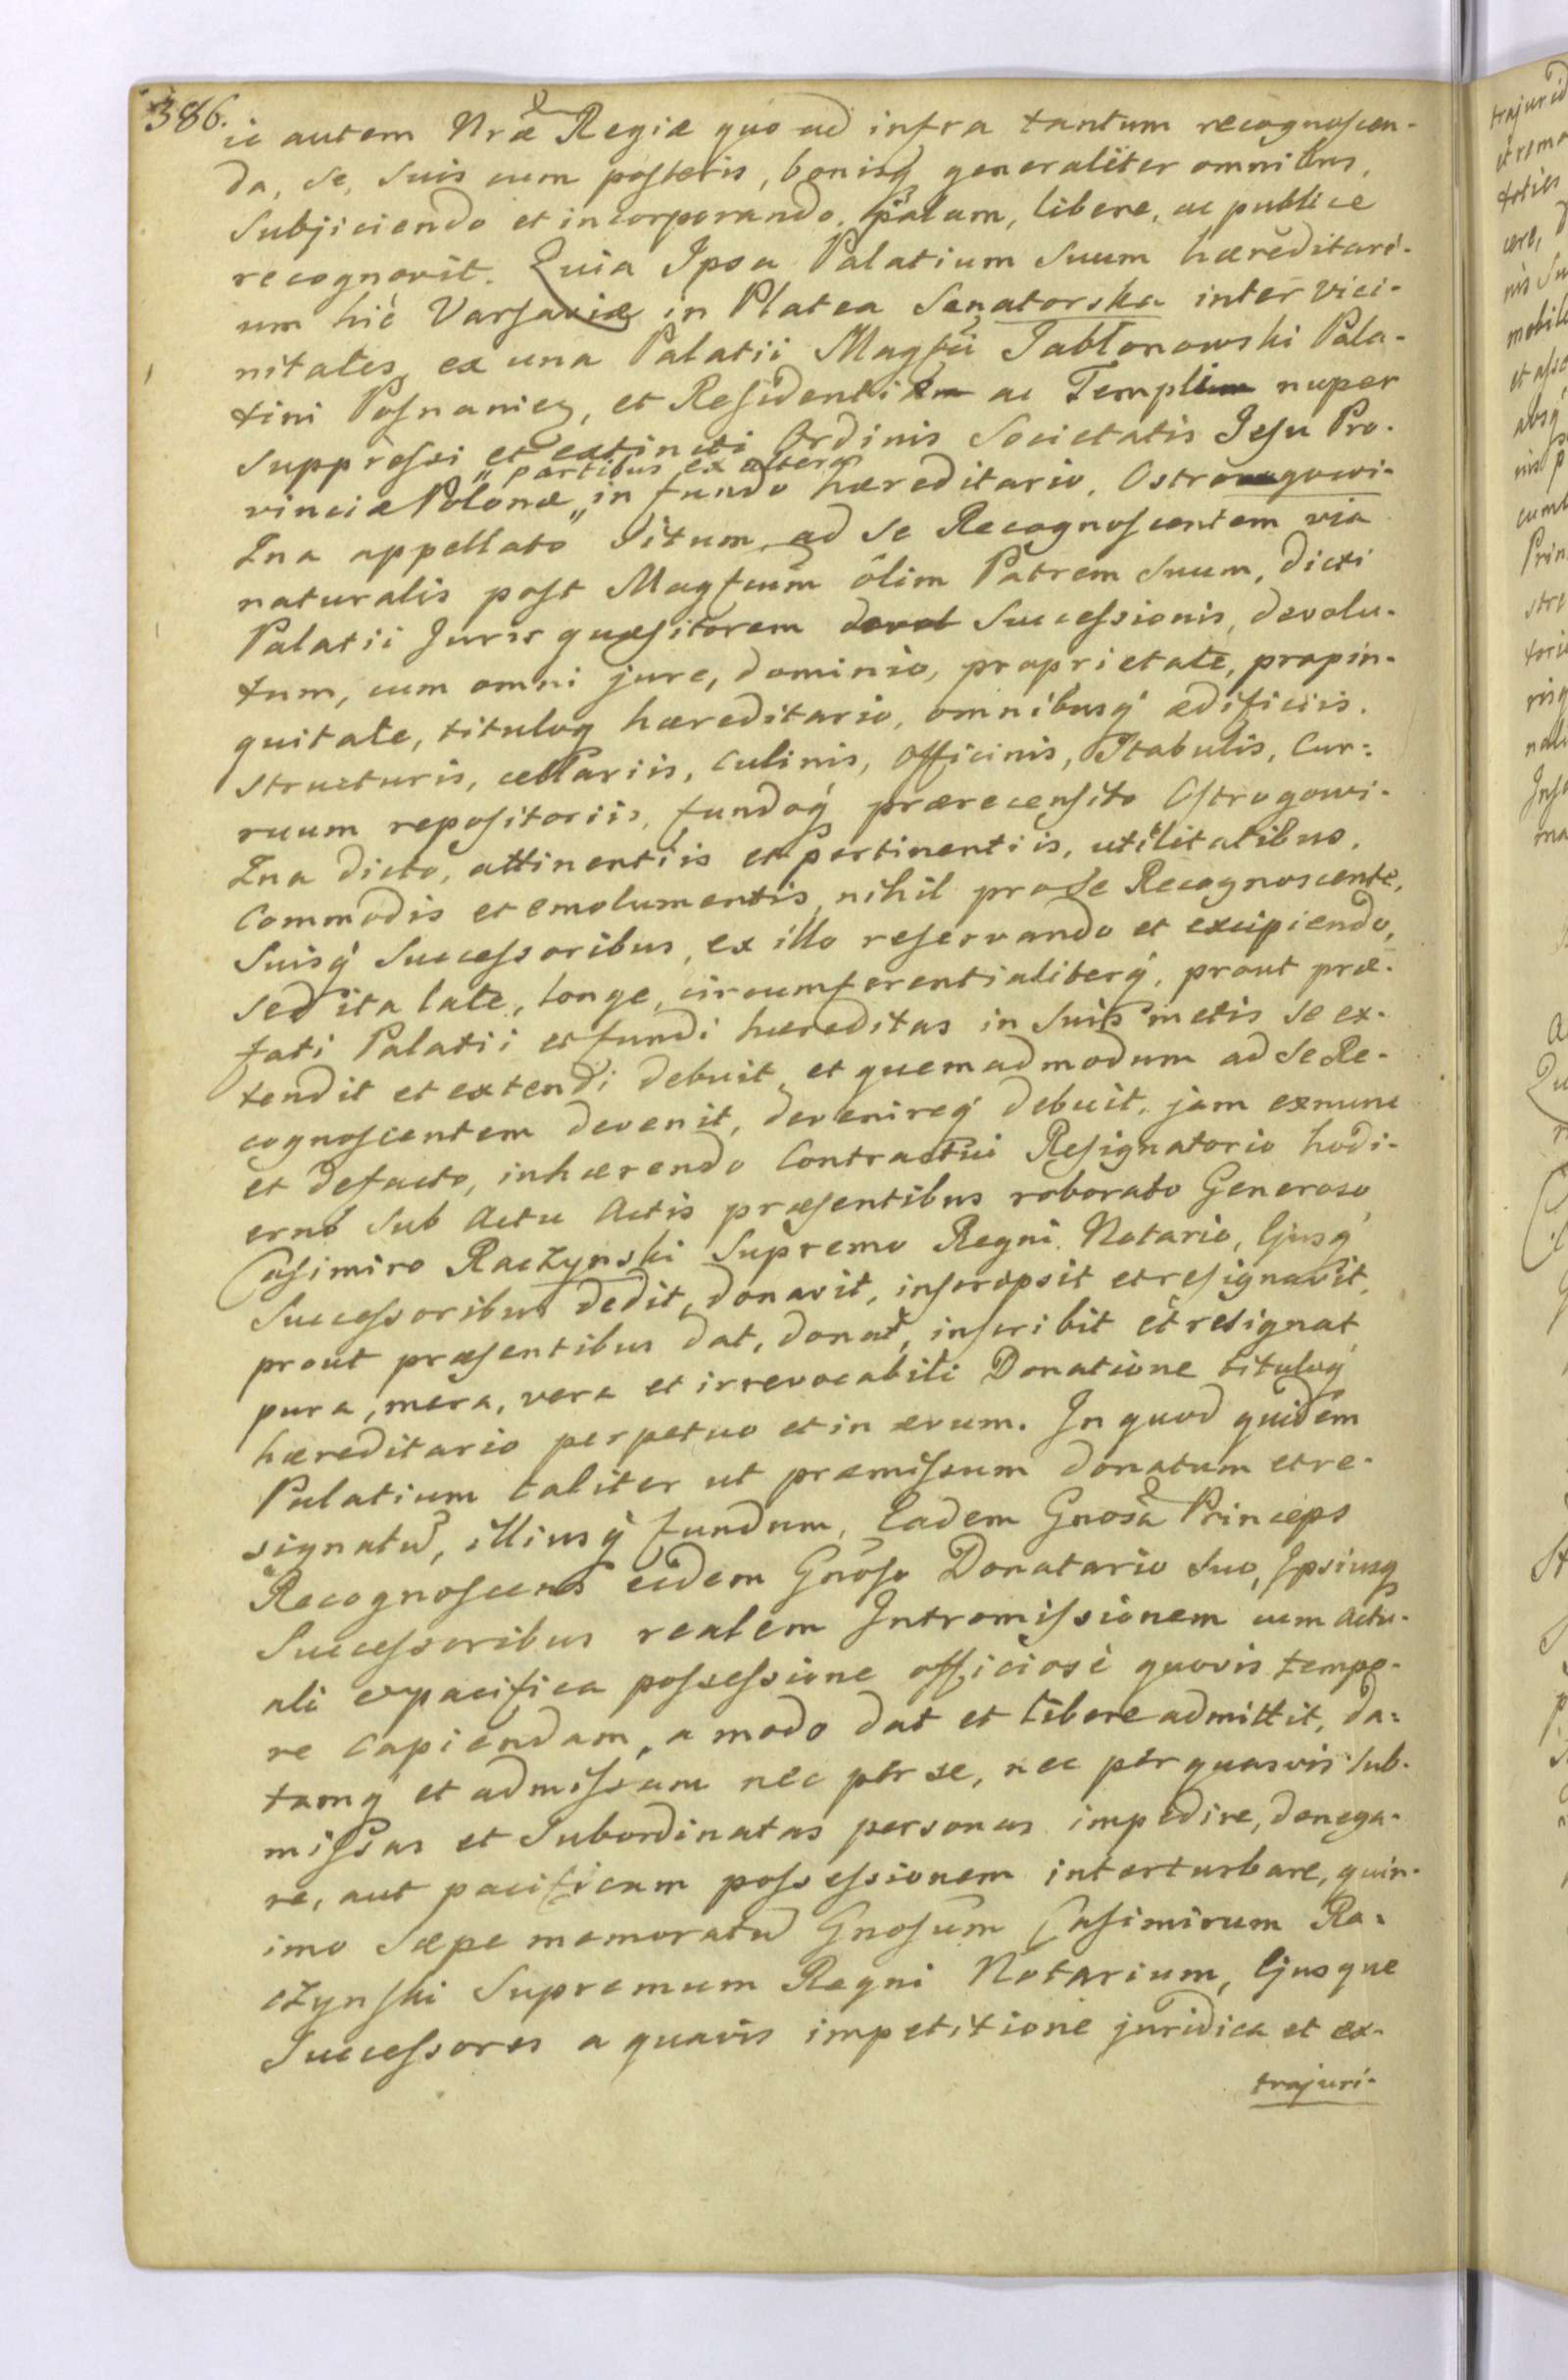 386.
ie autem Nræ Regiæ quo ad infra tantum recognoscen-
da, se, suis cum posteris, bonisq generaliter omnibus,
Subjiciendo et incorporando, palam, libere, ac publice
recognovit. Quia Ipsa Palatium Suum hæreditari-
um hic Varsaviæ in Platea Senatorska inter vici-
nitates, ex una Palatii Magfci Jabłonowski Pala-
tini Posnanien, et Residentiæ ac Templi nuper
suppressi et extincti Ordinis Societatis Jesu Pro-
" partibus ex altera
vinciæ Polonæ " in fundo hæreditario, Ostrogowi-
Zna appellato Situm, ad se Recognoscentem via
naturalis post Magfcum olim Patrem Suum, dicti
Palatii Juris quæsitorem devol Successionis, devolu-
tum, cum omni jure, dominio, proprietate, propin-
quitate, tituloq hæreditario, omnibusq ædificiis,
structuris, cellariis, Culinis, Officinis, Stabulis, Cur-
ruum repositoriis, fundoq prærecensito Ostrogowi-
Zna dicto, attinentiis et pertinentiis, utilitatibus,
Commodis et emolumentis, nihil pro se Recognoscente,
Suisq Successoribus, ex illo reservando et excipiendo,
sed ita late, longe, circumferentialiterq, prout præ-
fati Palatii et fundi hæreditas in suis metis se ex-
tendit et extendi debuit, et quemadmodum ad se Re-
cognoscentem devenit, devenireq debuit, jam exnunc
et defacto, inhærendo Contractui Resignatorio hodi-
erno sub Actu Actis præsentibus roborato Generoso
Casimiro Raczynski Supremo Regni Notario, Ejusq
Successoribus dedit, donavit, inscripsit et resignavit,
prout præsentibus dat, donat, inscribit et resignat
pura, mera, vera et irrevocabili Donatione tituloq
hæreditario perpetuo et in ævum. In quod quidem
Palatium taliter ut præmissum donatum et re-
signatu, illiusq fundum, Eadem Gnosa Princeps
Recognoscens eidem Gnoso Donatario suo, Ipsiusq
Successoribus realem Intromissionem cum actu-
ali et pacifica possessione officiose quovis tempo-
re capiendam, a modo dat et libere admittit, da-
tamq et admissam nec per se, nec per quasvis sub-
missas et Subordinatas personas impedire, denega-
re, aut pacificam possessionem interturbare, quin-
imo sæpe memoratu Gnosum Casimirum Ra-
czynski Supremum Regni Notarium, Ejusque
Successores a quavis impetitione juridica et ex-
trajuri-